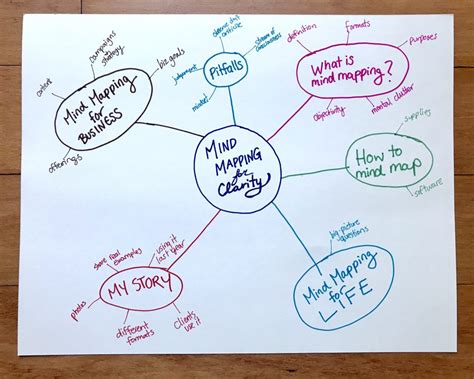 MIND
MAPPING
for
Clarity
Pitfalls
judgement
observe don't
criticize
stream of
consciousness
What is
mind mapping?
definition
formats
purposes
objectivity
mental clutter
How to
mind map
supplies
software
Mind Mapping
for
LIFE
big-picture
questions
MY STORY
share real
examples
using it
last year
photos
different
formats
clients
use it
Mind Mapping
for
BUSINESS
content
campaigns
strategy
biz goals
offerings